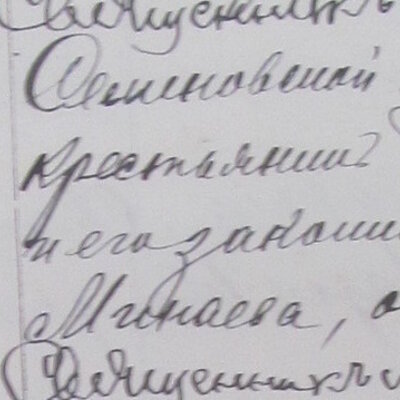 Священникъ
Семеновской
крестьянинъ
и его закон
Минаева,
Священникъ